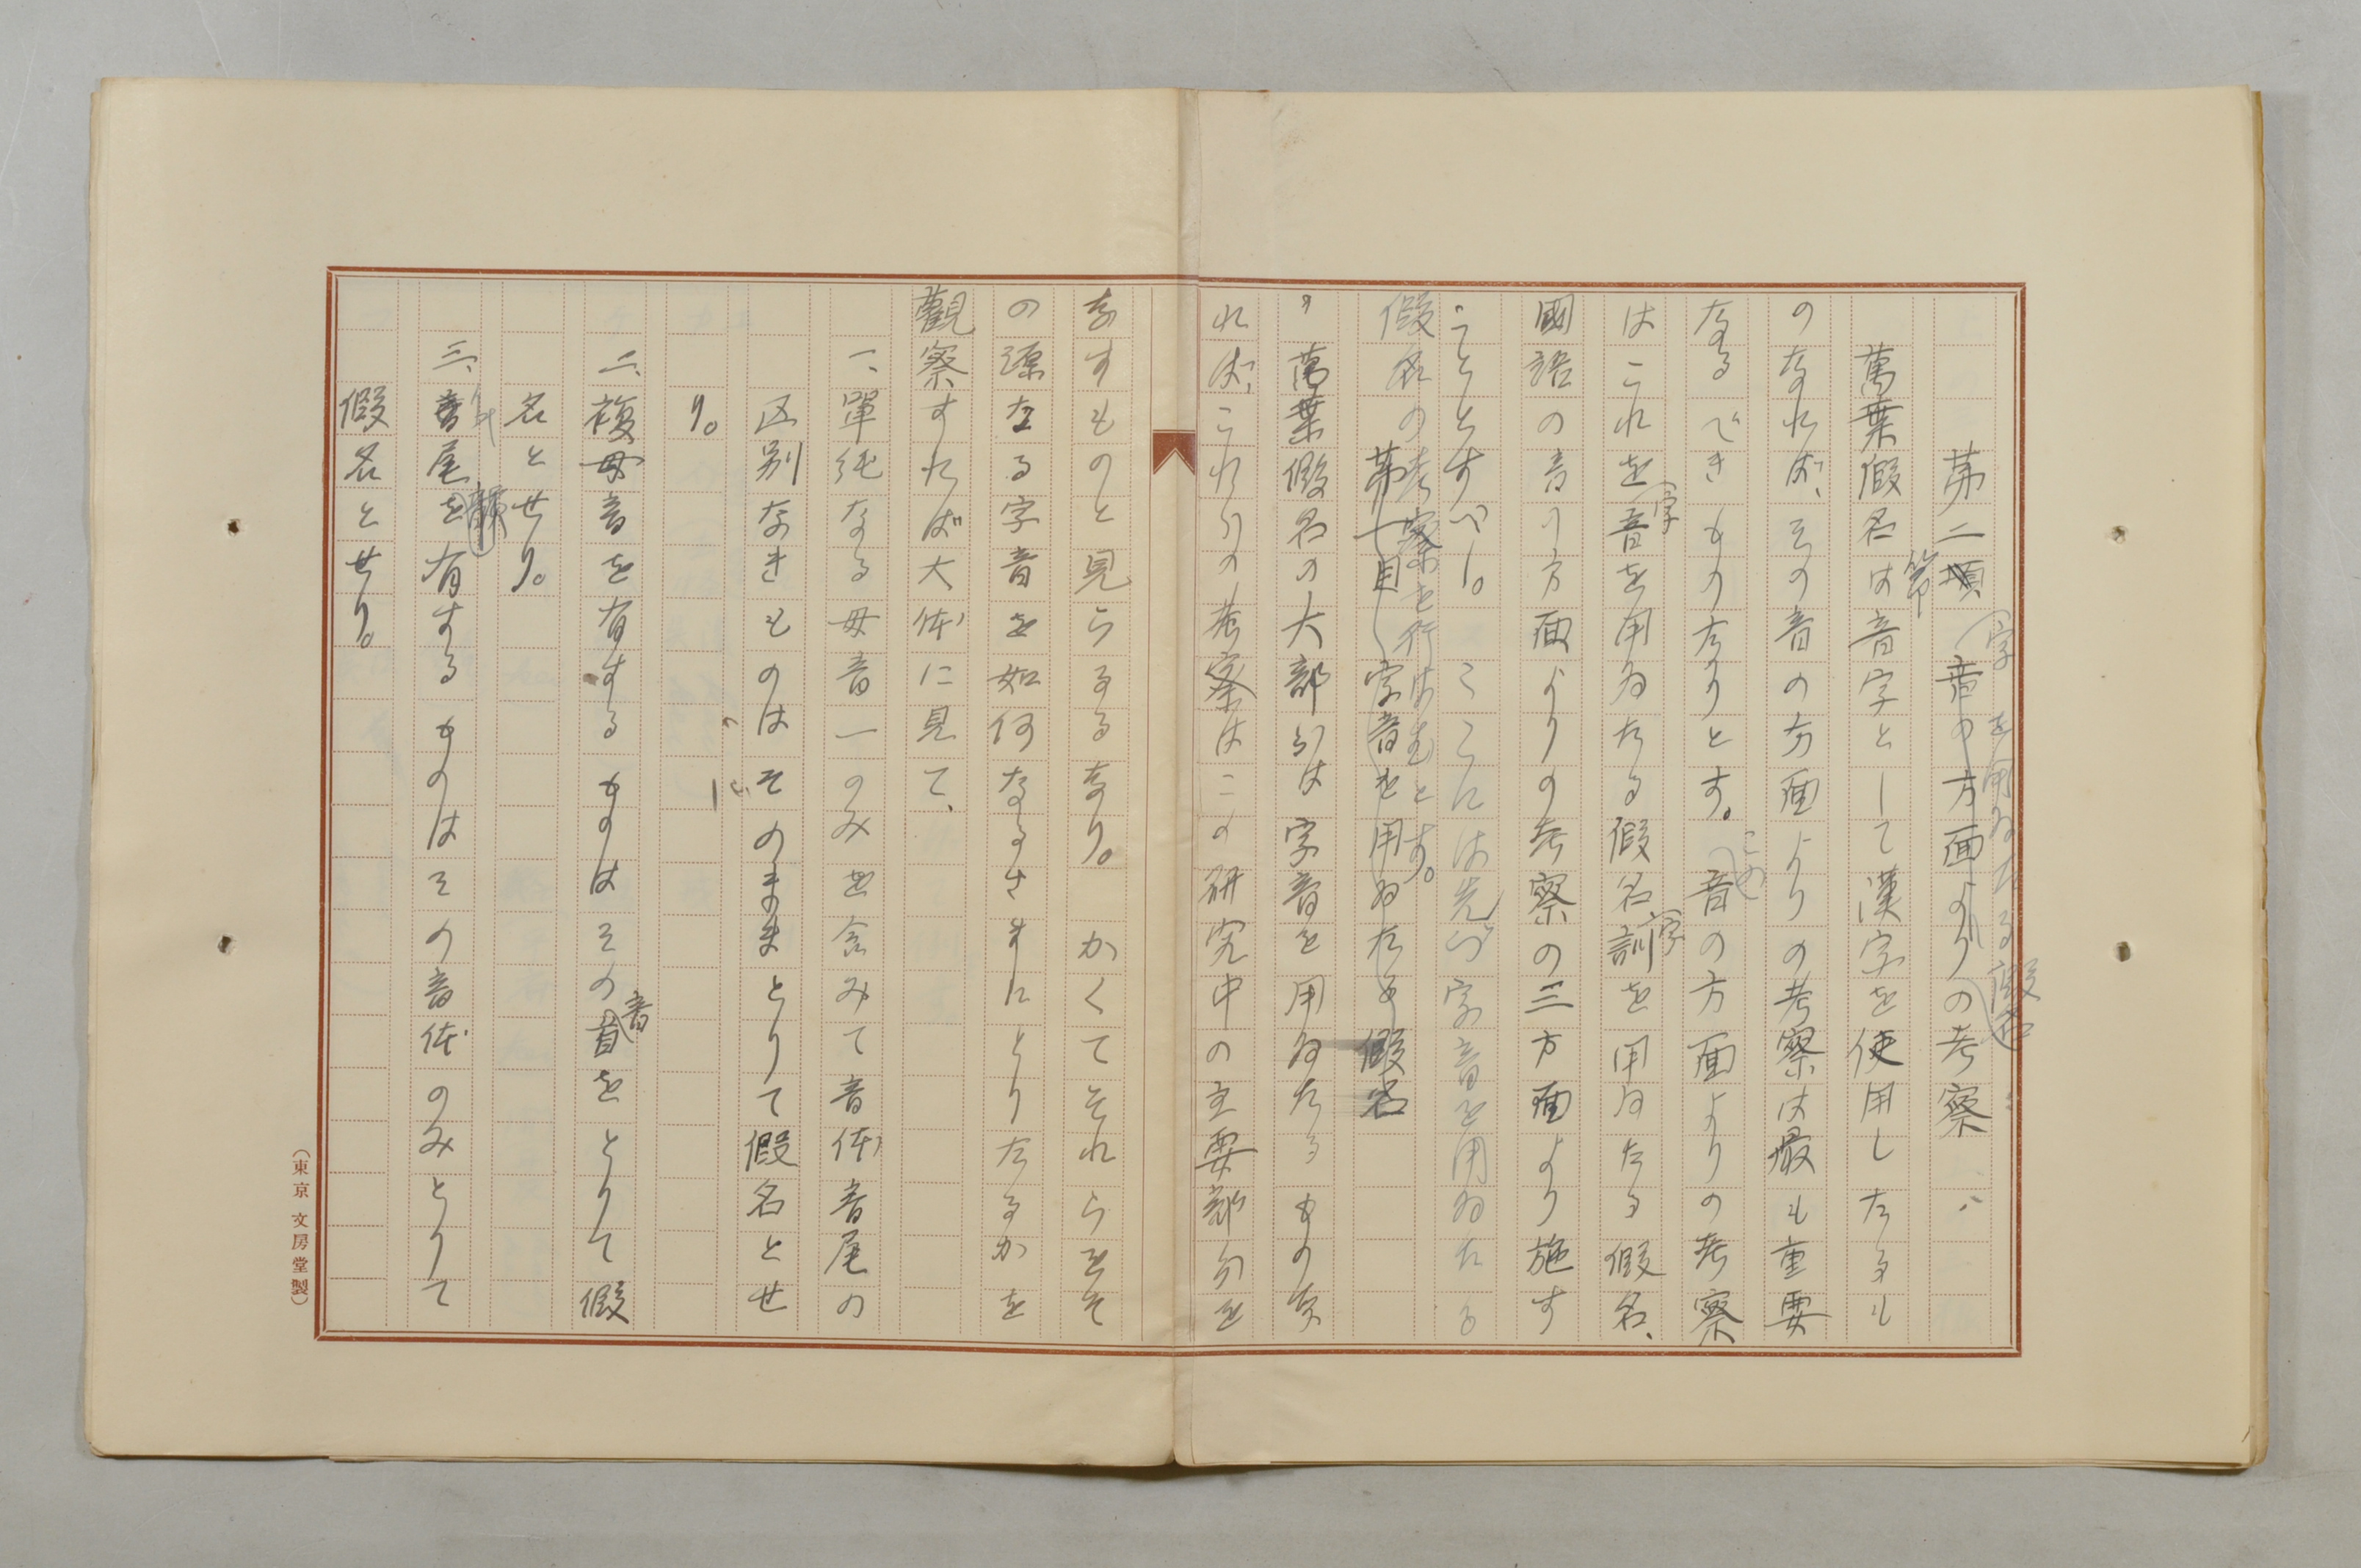 第二項節 字音の方面よりを用ゐたる假名の考察
萬葉假名は音字として漢字を使用したるも
のなれば、その音の方面よりの考察は最も重要
なるべきものなりとす。この音の方面よりの考察
はこれを字音を用ゐたる假名字訓を用ゐたる假名、
國語の音の方面よりの考察の三方面より施す
こととすべし。ここには先づ字音を用ゐたる
假名の考察を行はむとす。
第一目 字音を用ゐたる假名
萬葉假名の大部分は字音を用ゐたるもの
れば、これらの考察はこの研究中の主要部分を
なすものと見らるるなり。かくてそれらはそ
の源なる字音を如何なるさまにとりたるかを
觀察すれば大体に見て、
一、單純なる母音一のみを含みて音体音尾の
区別なきものはそのままとりて假名とせ
り。
二、複母音を有するものはその首音をとりて假
名とせり。
三、音尾韻を有するものはその音体のみとりて
假名とせり。
(東京 文房堂製)